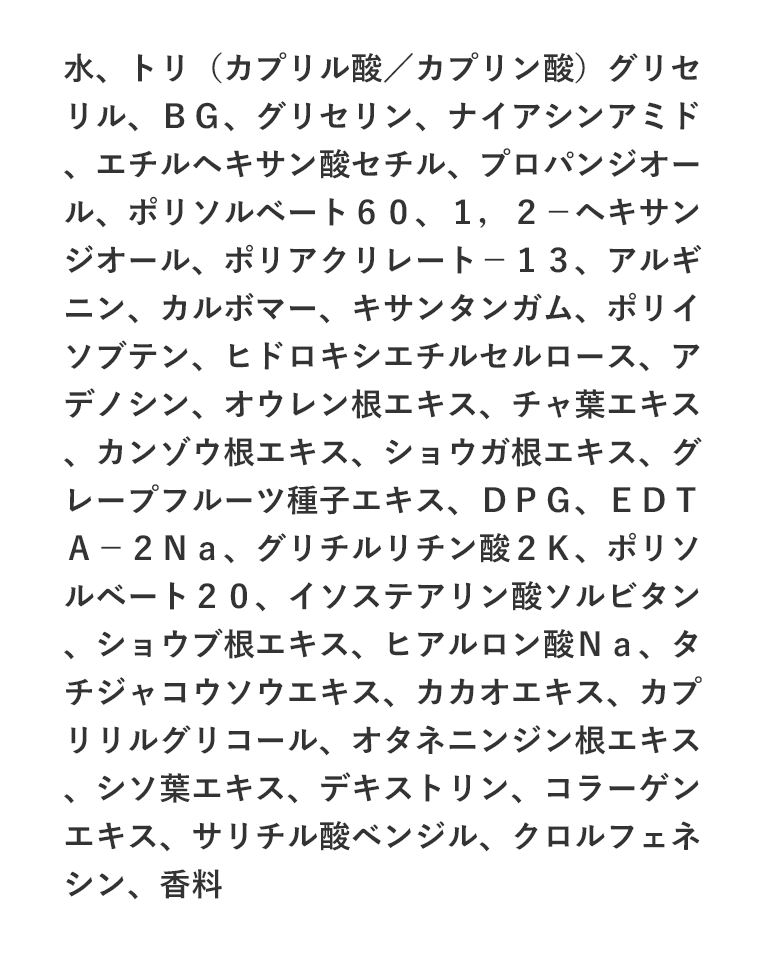 水、トリ（カプリル酸／カプリン酸）グリセ
リル、ＢＧ、グリセリン、ナイアシンアミド
、エチルヘキサン酸セチル、プロパンジオー
ル、ポリソルベート６０、１，２－ヘキサン
ジオール、ポリアクリレート－１３、アルギ
ニン、カルボマー、キサンタンガム、ポリイ
ソブテン、ヒドロキシエチルセルロース、ア
デノシン、オウレン根エキス、チャ葉エキス
、カンゾウ根エキス、ショウガ根エキス、グ
レープフルーツ種子エキス、ＤＰＧ、ＥＤＴ
Ａ－２Ｎａ、グリチルリチン酸２Ｋ、ポリソ
ルベート２０、イソステアリン酸ソルビタン
、ショウブ根エキス、ヒアルロン酸Ｎａ、タ
チジャコウソウエキス、カカオエキス、カプ
リリルグリコール、オタネニンジン根エキス
、シソ葉エキス、デキストリン、コラーゲン
エキス、サリチル酸ベンジル、クロルフェネ
シン、香料